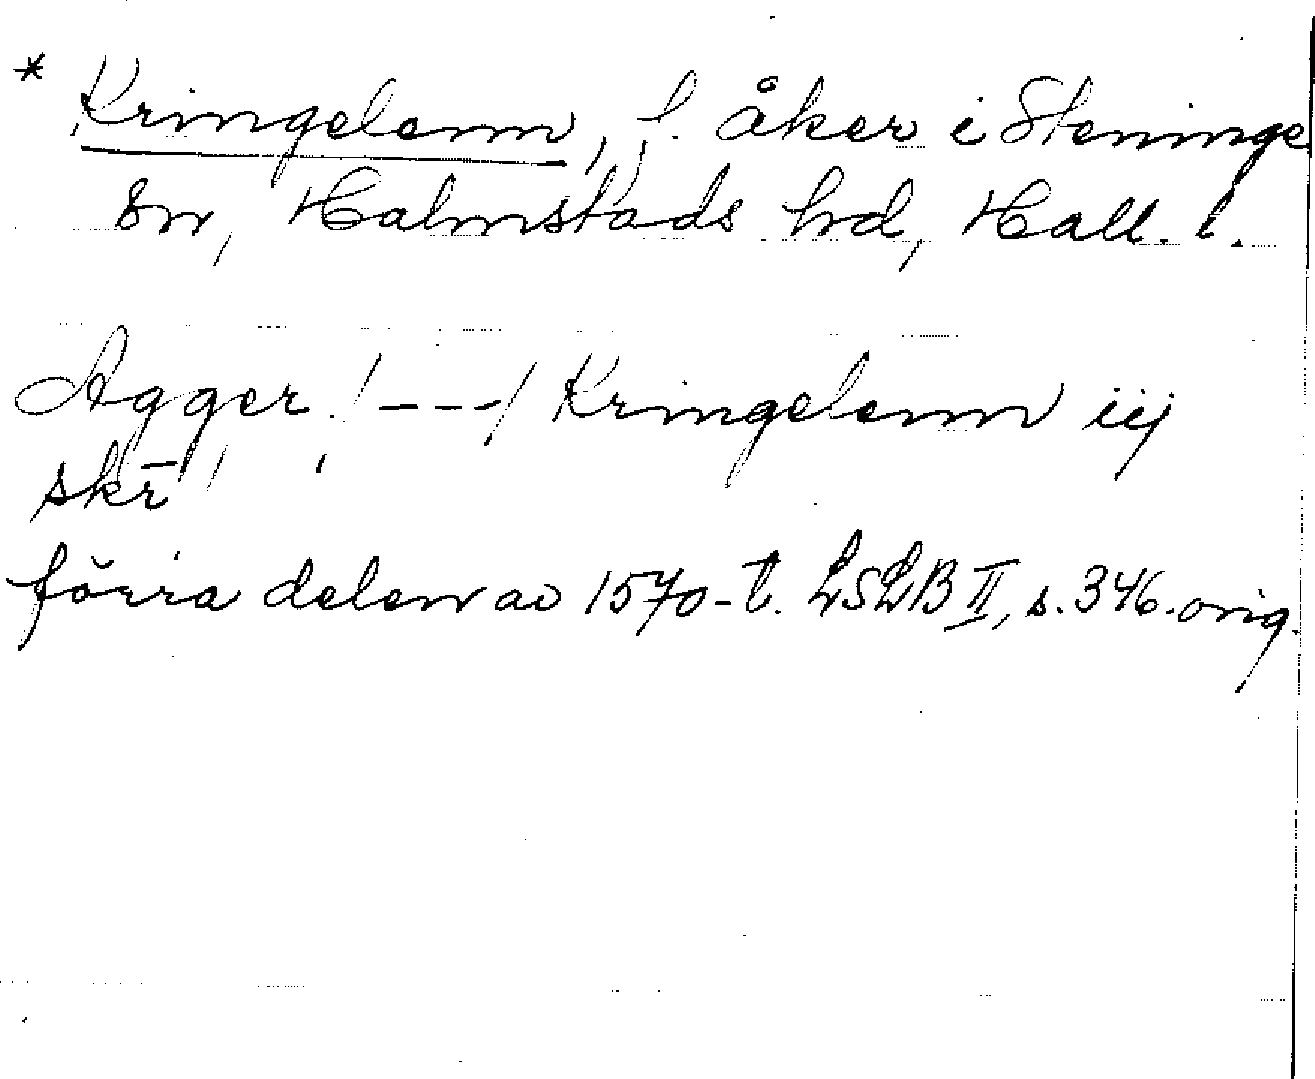 * Kringelenn, f. åker i Steninge
sn, Halmstads hd, Hall. l.
Agger /---/ Kringelenn iij
skr̄
förra delen av 1570-t. LSLB II, s. 346. orig.